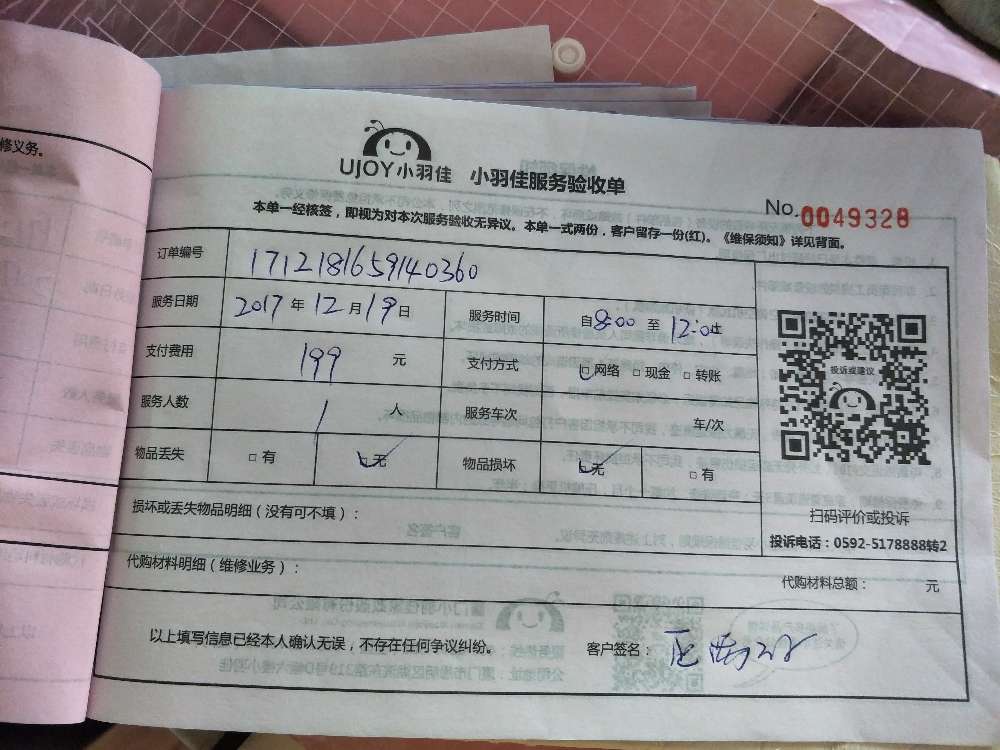 修义务。
UJOY小羽佳 小羽佳服务验收单
No.0049328
本单一经核签，即视为对本次服务验收无异议。本单一式两份，客户留存一份(红)。《维保须知》详见背面。
订单编号 1712181659140360
服务日期 2017 年 12 月 19 日 服务时间 自 8:00 至 12:00
支付费用 199 元 支付方式 网络 □ 现金 □ 转账
服务人数 1 人 服务车次 车/次
物品丢失 □ 有 无 物品损坏 无 □ 有
投诉或建议
扫码评价或投诉
投诉电话：0592-5178888转2
损坏或丢失物品明细（没有可不填）：
代购材料明细（维修业务）： 代购材料总额： 元
以上填写信息已经本人确认无误，不存在任何争议纠纷。 客户签名：